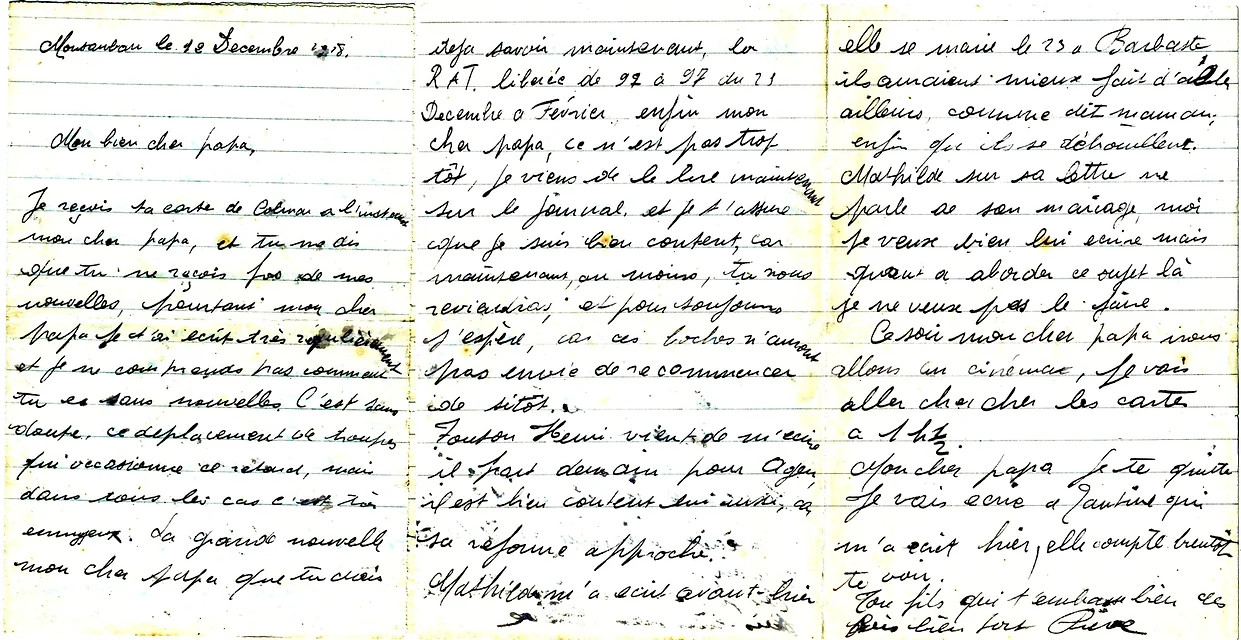 Montauban le 18 Decembre 1918.
Mon bien cher papa,
Je reçois ta carte de Colmar a l'instant
mon cher papa, et tu me dis
que tu ne reçois pas de mes
nouvelles, pourtant mon cher
papa je t'ai écrit très régulièrement
et je ne comprends pas comment
tu es sans nouvelles. C'est sans
doute, ce deplacement de troupes
qui occasionne ce retard, mais
dans tous les cas c'est très
ennuyeux. La grande nouvelle
mon cher papa que tu dois
deja savoir maintenant, la
R.A.T. libérée de 92 à 97 du 23
Decembre a Février, enfin mon
cher papa, ce n'est pas trop
tôt, je viens de le lire maintenant
sur le journal. et je t'assure
que je suis bien content, car
maintenant, au moins, tu nous
reviendras, et pour toujours
j'espère, car ces boches n'auront
pas envie de recommencer
de sitôt.
Tonton Henri vient de m'ecrire
il part demain pour Agen,
il est bien content lui aussi, car
sa réforme approche.
Mathilde m'a ecrit avant-hier
elle se marie le 23 a Barbaste
ils auraient mieux fait d'aller
ailleurs, comme dit maman,
enfin qu'ils se débrouillent.
Mathilde sur sa lettre ne
parle de son mariage, moi
je veux bien lui ecrire mais
quant a aborder ce sujet là
je ne veux pas le faire.
Ce soir mon cher papa nous
allons au cinéma, je vais
aller chercher les cartes
a 1 h ½
Mon cher papa je te quitte
Je vais ecrire a Tantine qui
m'a ecrit hier, elle compte bientôt
te voir.
Ton fils qui t'embrasse bien des
fois bien fort